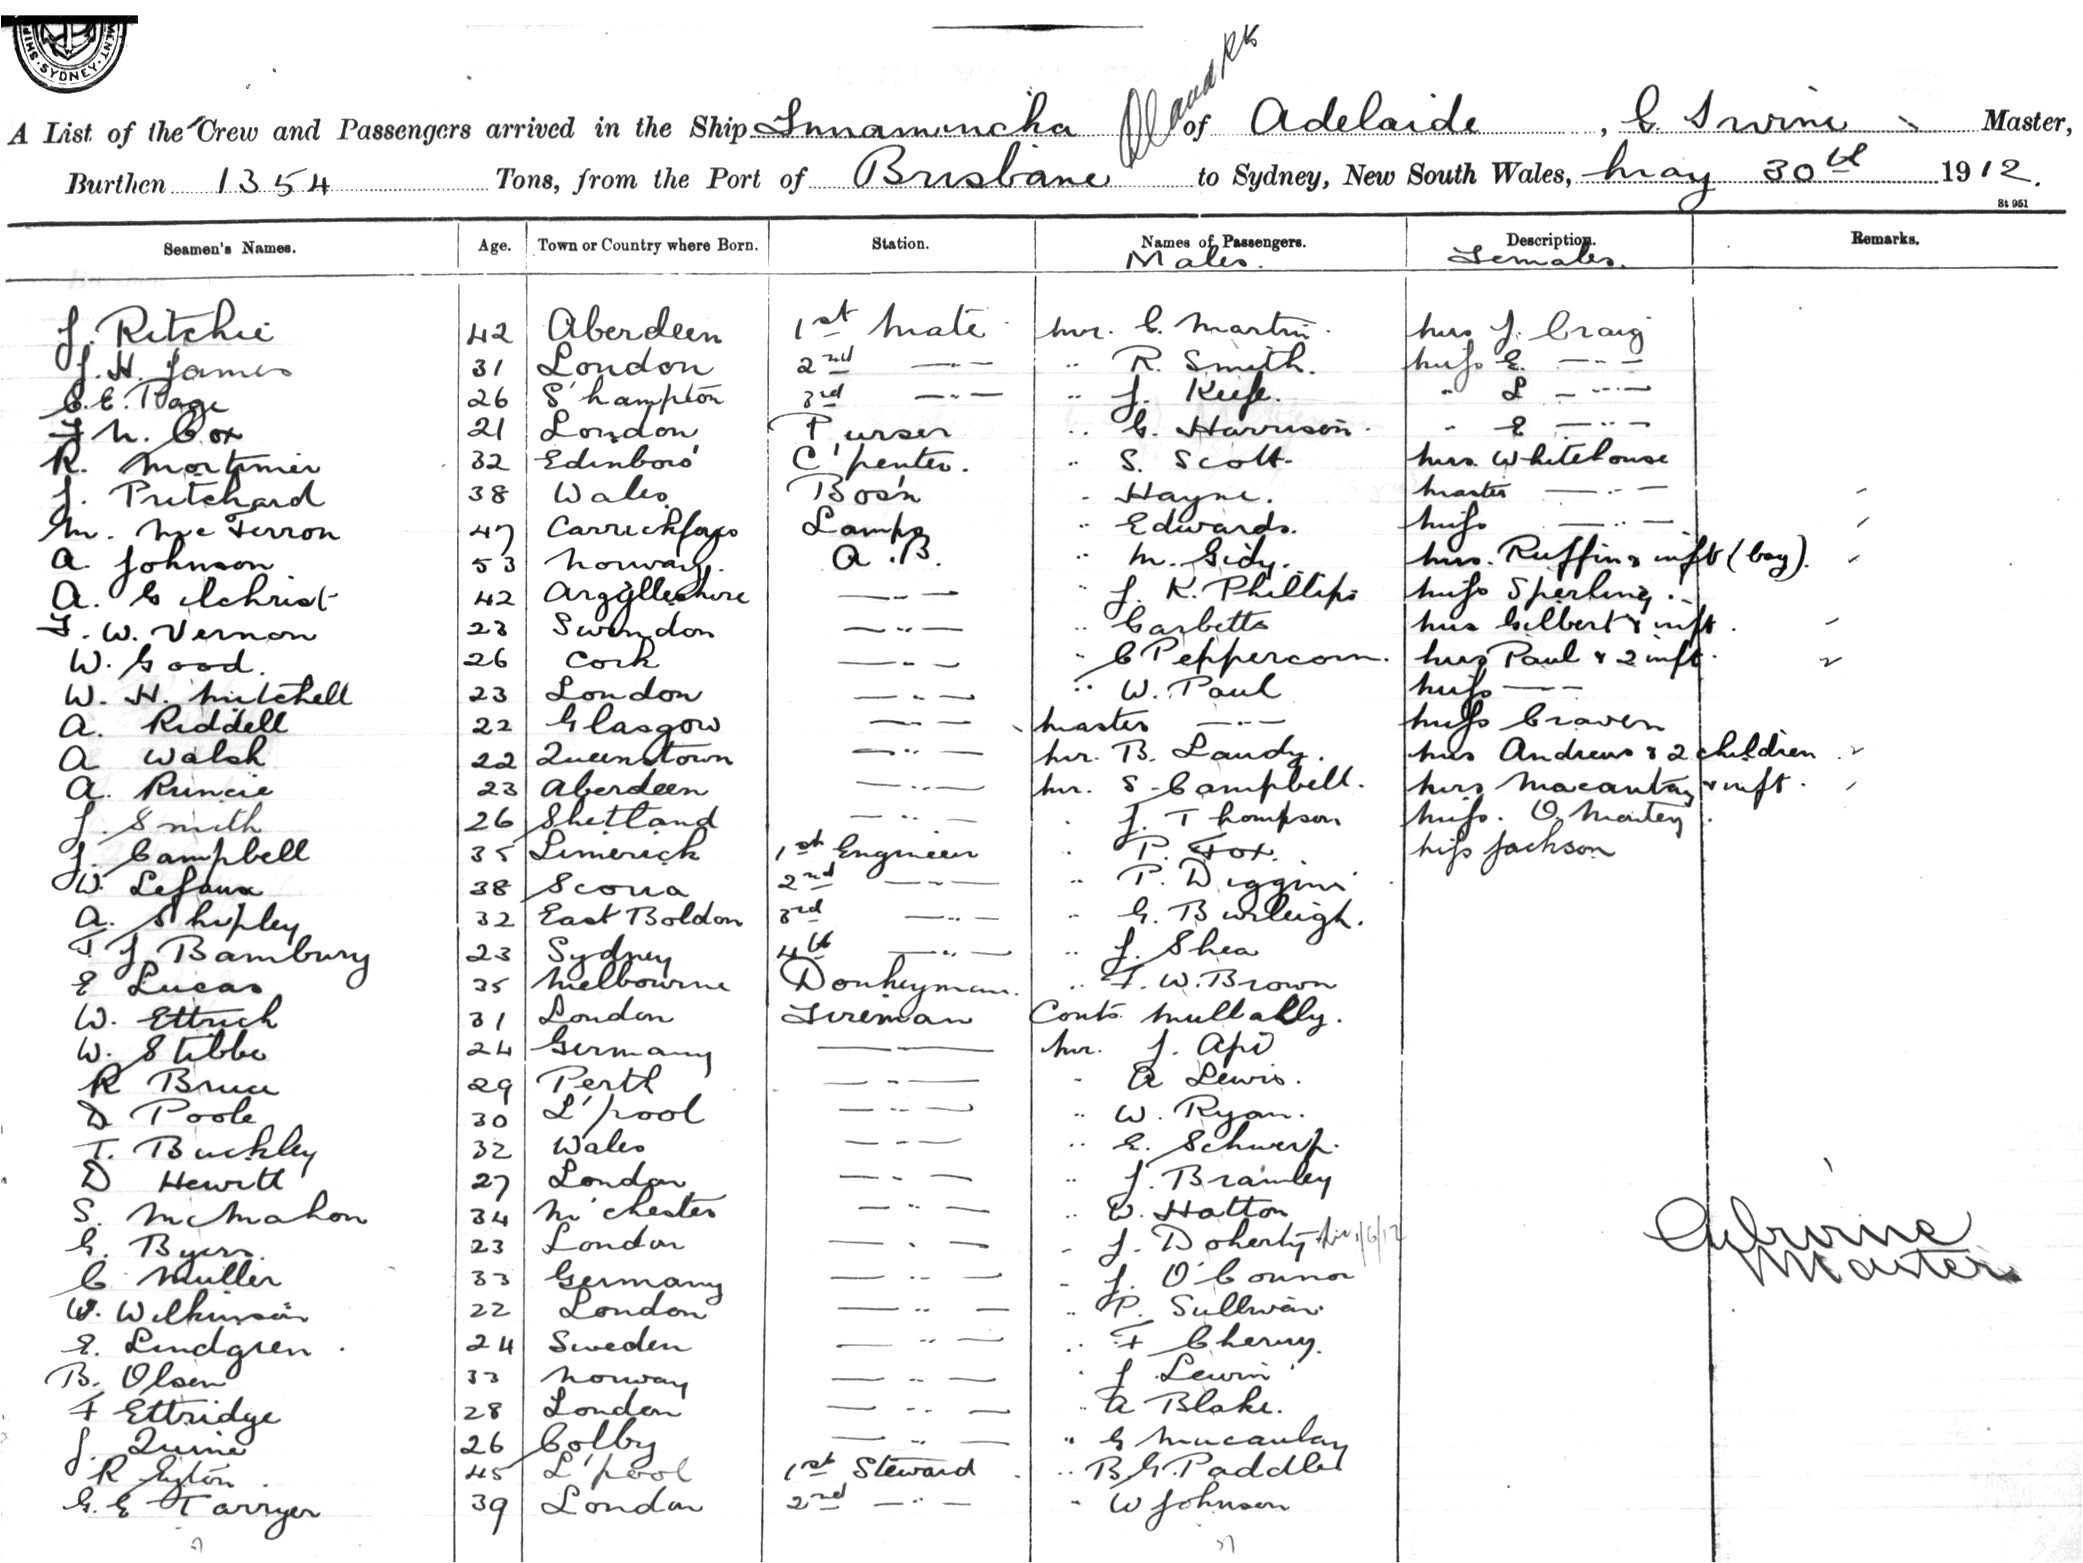 SHIP MENT SYDNEY
A List of the Crew and Passengers arrived in the Ship Innamincka of Adelaide, C. Irvine Master,
Burthen 1354 Tons, from the Port of Brisbane to Sydney, New South Wales, May 30th 1912.
St 951
Seamen's Names. Age. Town or Country where Born. Station. Names of Passengers. Description. Remarks.
Males. Females.
J. Ritchie 42 Aberdeen 1st Mate Mr. C. Martin. Mrs J. Craig
J. H. James 31 London 2nd —"— " R. Smith. Miss E. —"—
C. E. Page 26 S'hampton 3rd —"— " J. Keefe. " L —"—
F N. Cox 21 London Purser " C. Harrison. " E —"—
R. Mortimer 32 Edinboro' C'penter. " S. Scott. Mrs. Whitehouse
J. Pritchard 38 Wales Bos'n " Hayne. Master —"—
M. McFerron 47 Carrickfergs Lamps " Edwards. Miss —"—
A. Johnson 53 Norway. A.B. " M. Gidy. Mrs. Ruffin & inft (boy).
A. Gilchrist 42 Argylleshire —"— " J. K. Phillips Miss Sperling.
F. W. Vernon 23 Swindon —"— " Carbetts Mrs Gilbert & inft.
W. Good. 26 Cork —"— " C Peppercorn. Mrs Paul & 2 inft.
W. H. Mitchell 23 London —"— " W. Paul Miss —"—
A. Riddell 22 Glasgow —"— Master —"— Miss Craven
A Walsh 22 Queenstown —"— Mr. B. Landy. Mrs Andrews & 2 children
A. Runcie 23 Aberdeen —"— Mr. S. Campbell. Mrs Macaulay & inft.
J. Smith 26 Shetland —"— " J. Thompson Miss. O.
J. Campbell 35 Limerick 1st Engineer " P. Fox. Miss Jackson
W. Lefaux 38 2nd —"— " P. Diggins
A. Shipley 32 East Boldon 3rd —"— " G. Burleigh.
T J Bambury 23 Sydney 4th —"— " J. Shea
E Lucas 35 Melbourne Donkeyman. " F. W. Brown
W. Ettrich 31 London Fireman Cont. Mullally.
W. Stibbe 24 Germany —"— Mr. J. Api
R Bruce 29 Perth —"— " A Lewis.
D Poole 30 L'pool —"— " W. Ryan.
T. Buckley 32 Wales —"— " E. Schwerp.
D Hewitt 27 London —"— " J. Bramley
S. McMahon 34 M'chester —"— " W. Hatton
G. Byers. 23 London —"— " J. Doherty 1/6/12
C Muller 33 Germany —"— " J. O'Connor
W. Wilkinson 22 London —"— " P. Sullivan
E. Lindgren 24 Sweden —"— " F Cherry.
B. Olsen 33 Norway —"— " J Lewin
F Ettridge 28 London —"— " A Blake.
J. Quine 26 Colby —"— " G Macaulay
R Eyton 45 L'pool 1st Steward " B. G. Paddle
G. E Tarryer 39 London 2nd —"— " W Johnson
C Irvine
Master